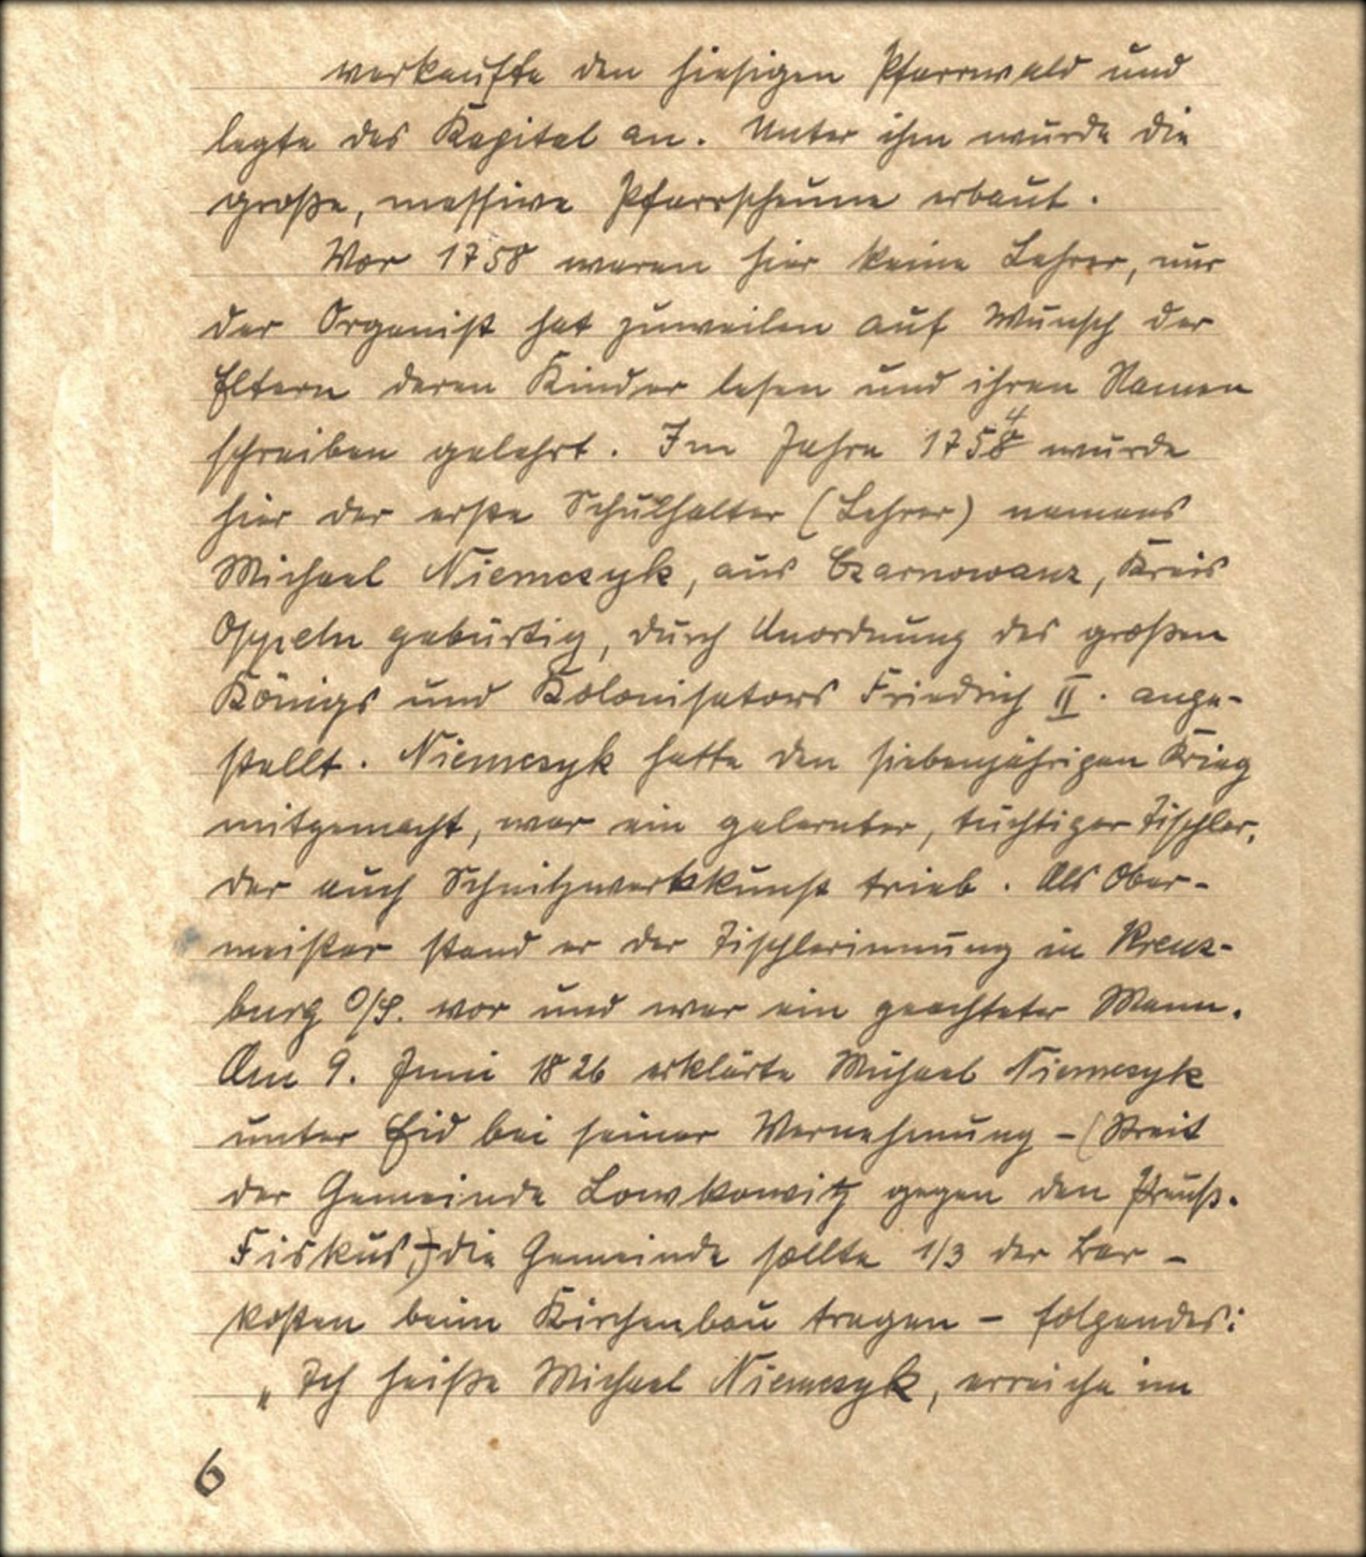 verkaufte den hiesigen Pfarrwald und
legte das Kapital an. Unter ihm wurde die
große, massive Pfarrscheune erbaut.
Vor 1758 waren hier keine Lehrer, nur
der Organist hat zuweilen auf Wunsch der
Eltern deren Kinder lesen und ihren Namen
schreiben gelehrt. Im Jahre 1758 4 wurde
hier der erste Schulhalter (Lehrer) namens
Michael Niemczyk, aus Czarnowanz, Kreis
Oppeln gebürtig, durch Anordnung des großen
Königs und Kolonisators Friedrich II. ange-
stellt. Niemczyk hatte den siebenjährigen Krieg
mitgemacht, war ein gelernter, tüchtiger Tischler,
der auch Schnitzwerkkunst trieb. Als Ober-
meister stand er der Tischlerinnung in Kreuz-
burg O/S. vor und war ein geachteter Mann.
Am 9. Juni 1826 erklärte Michael Niemczyk
unter Eid bei seiner Vernehmung - (Streit
der Gemeinde Lowkowitz gegen den Preuß.
Fiskus,) die Gemeinde sollte 1/3 der Bar-
kosten beim Kirchenbau tragen - folgendes:
„Ich heiße Michael Niemczyk, erreiche im
6